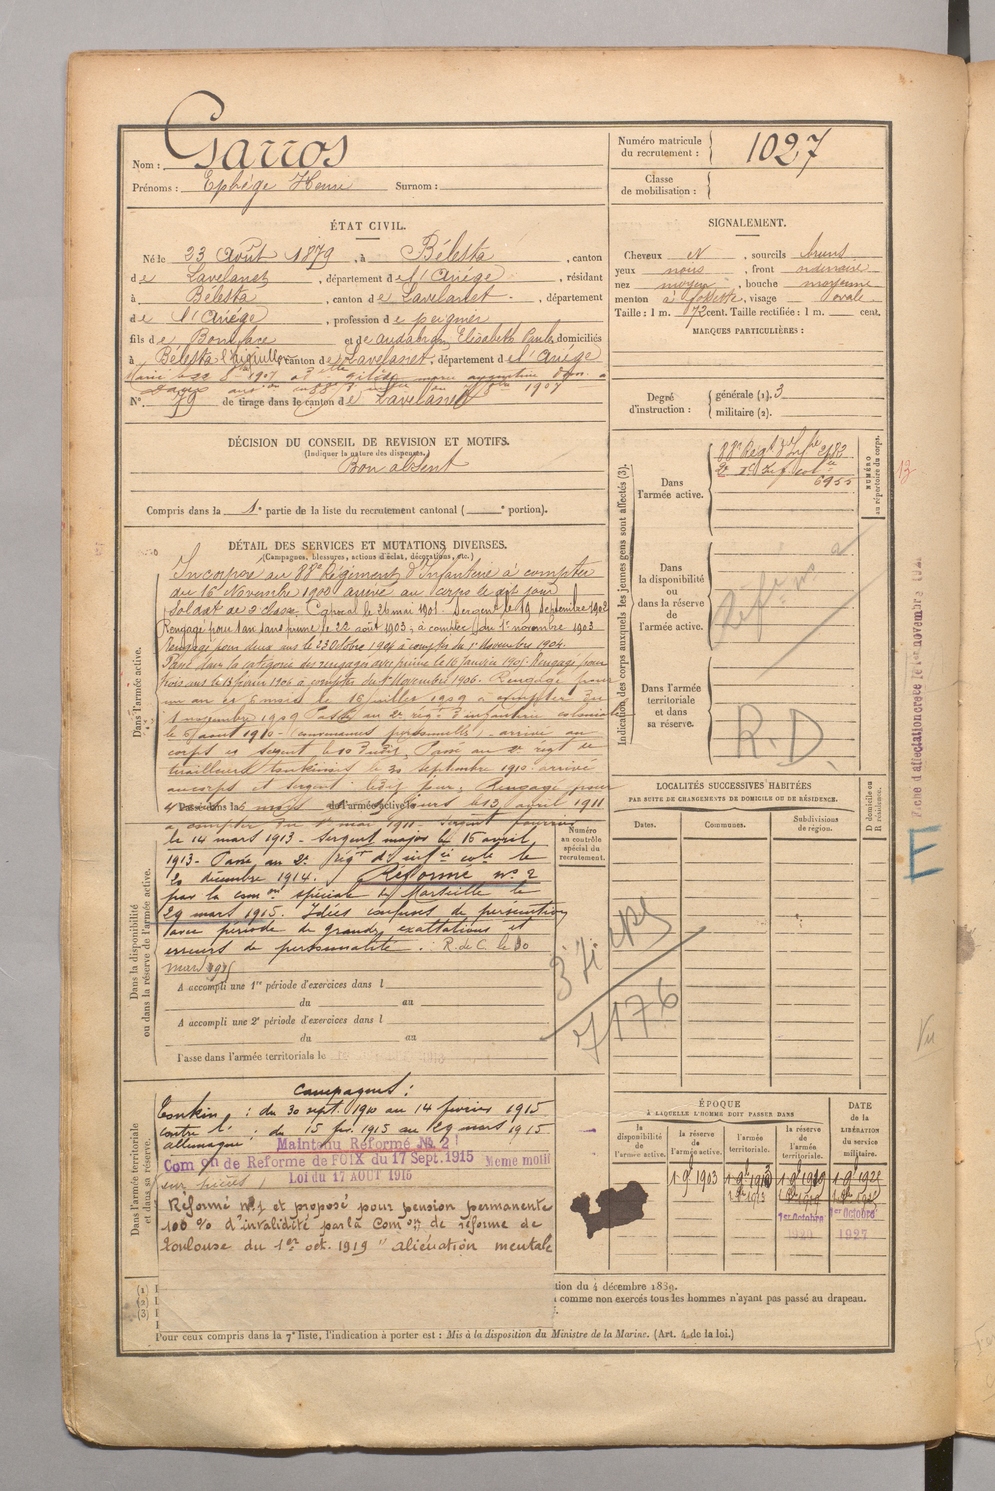 Nom : Garros
Prénoms : Ephège Henri Surnom :
Numéro matricule du recrutement : 1027
Classe de mobilisation :
ÉTAT CIVIL.
Né le 23 Août 1879, à Bélesta, canton
de Lavelanet, département de l'Ariège, résidant
à Bélesta, canton de Lavelanet, département
de l'Ariège, profession de peigneur
fils de Boniface et de Audabram Elisabeth Paule domiciliés
à Bélesta, canton de Lavelanet, département de l'Ariège
N° 79 de tirage dans le canton de Lavelanet
SIGNALEMENT.
Cheveux N, sourcils bruns
yeux , front ordinaire
nez moyen, bouche moyenne
menton à fossette, visage ovale
Taille : 1 m. 72 cent. Taille rectifiée : 1 m. cent.
MARQUES PARTICULIÈRES :
Degré d'instruction : générale (1). 3
militaire (2).
DÉCISION DU CONSEIL DE REVISION ET MOTIFS.
(Indiquer la nature des dispenses.)
Bon absent
Compris dans la 1e partie de la liste du recrutement cantonal ( e portion).
Indication des corps auxquels les jeunes gens sont affectés (3).
NUMÉRO au répertoire du corps.
Dans l'armée active.
88e Régt d'Infie
6955
Dans la disponibilité ou dans la réserve de l'armée active.
Dans l'armée territoriale et dans sa réserve.
R.D.
DÉTAIL DES SERVICES ET MUTATIONS DIVERSES.
(Campagnes, blessures, actions d'éclat, décorations, etc.)
Dans l'armée active.
Incorporé au 88e Régiment d'Infanterie à compter
du 16 Novembre 1900 arrivé au corps le dit jour
Soldat de 2 classe. Caporal le 26 mai 1901. Sergent le 19 Septembre 1902
Rengagé pour 1 an sans prime le 22 août 1903, à compter du 1er novembre 1903
Rengagé pour deux ans le 23 Octobre 1904 à compter du 1er Novembre 1904.
Passé dans la catégorie des rengagés avec prime le 16 Janvier 1905. Rengagé pour
trois ans le 13 février 1906 à compter du 1er Novembre 1906. Rengagé pour
un an et 6 mois le 16 juillet 1909 à compter du
1 novembre 1909 Passé au 2e régt d'infanterie coloniale
le 6 août 1910 (convenances personnelles) arrivé au
corps et sergent le 10 dudit. Passé au 2e regt de
tirailleurs tonkinois le 30 septembre 1910 arrivé
au corps et sergent le dit jour. Rengagé pour
le 13 avril 1911
à compter du 1er mai 1911. Sergent fourrier
le 14 mars 1913 - Sergent major le 16 avril
1913 - Passé au 2e régt d'infie cole le
20 décembre 1914. Réformé n° 2
par la comon spéciale de Marseille le
29 mars 1915. Idées confuses de persécution
avec période de grandes exaltations et
erreurs de personnalité. R. de C. le 30
mars 1915
Dans la disponibilité ou dans la réserve de l'armée active.
A accompli une 1re période d'exercices dans l
du au
A accompli une 2e période d'exercices dans l
du au
Passe dans l'armée territoriale le
Numéro au contrôle spécial du recrutement.
7176
LOCALITÉS SUCCESSIVES HABITÉES
PAR SUITE DE CHANGEMENTS DE DOMICILE OU DE RÉSIDENCE.
Dates. Communes. Subdivisions de région. D domicile ou R résidence.
E
Vu
Dans l'armée territoriale et dans sa réserve.
Campagnes :
Tonkin : du 30 sept. 1910 au 14 février 1915
contre l'allemagne : du 15 fév. 1915 au 29 mars 1915
Maintenu Réformé N° 2
Comon de Réforme de FOIX du 17 Sept. 1915 Meme motif
sur pièces Loi du 17 AOUT 1915
Réformé n° 1 et proposé pour pension permanente
100 % d'invalidité par la Comon de réforme de
Toulouse du 1er oct. 1919 "aliénation mentale
ÉPOQUE
À LAQUELLE L'HOMME DOIT PASSER DANS
la disponibilité de l'armée active. la réserve de l'armée active. l'armée territoriale. la réserve de l'armée territoriale.
DATE de la LIBÉRATION du service militaire.
1 9bre 1903
1er Octobre 1er Octobre
1927
(1)
(2)
(3)
comme non exercés tous les hommes n'ayant pas passé au drapeau.
Pour ceux compris dans la 7e liste, l'indication à porter est : Mis à la disposition du Ministre de la Marine. (Art. 4 de la loi.)